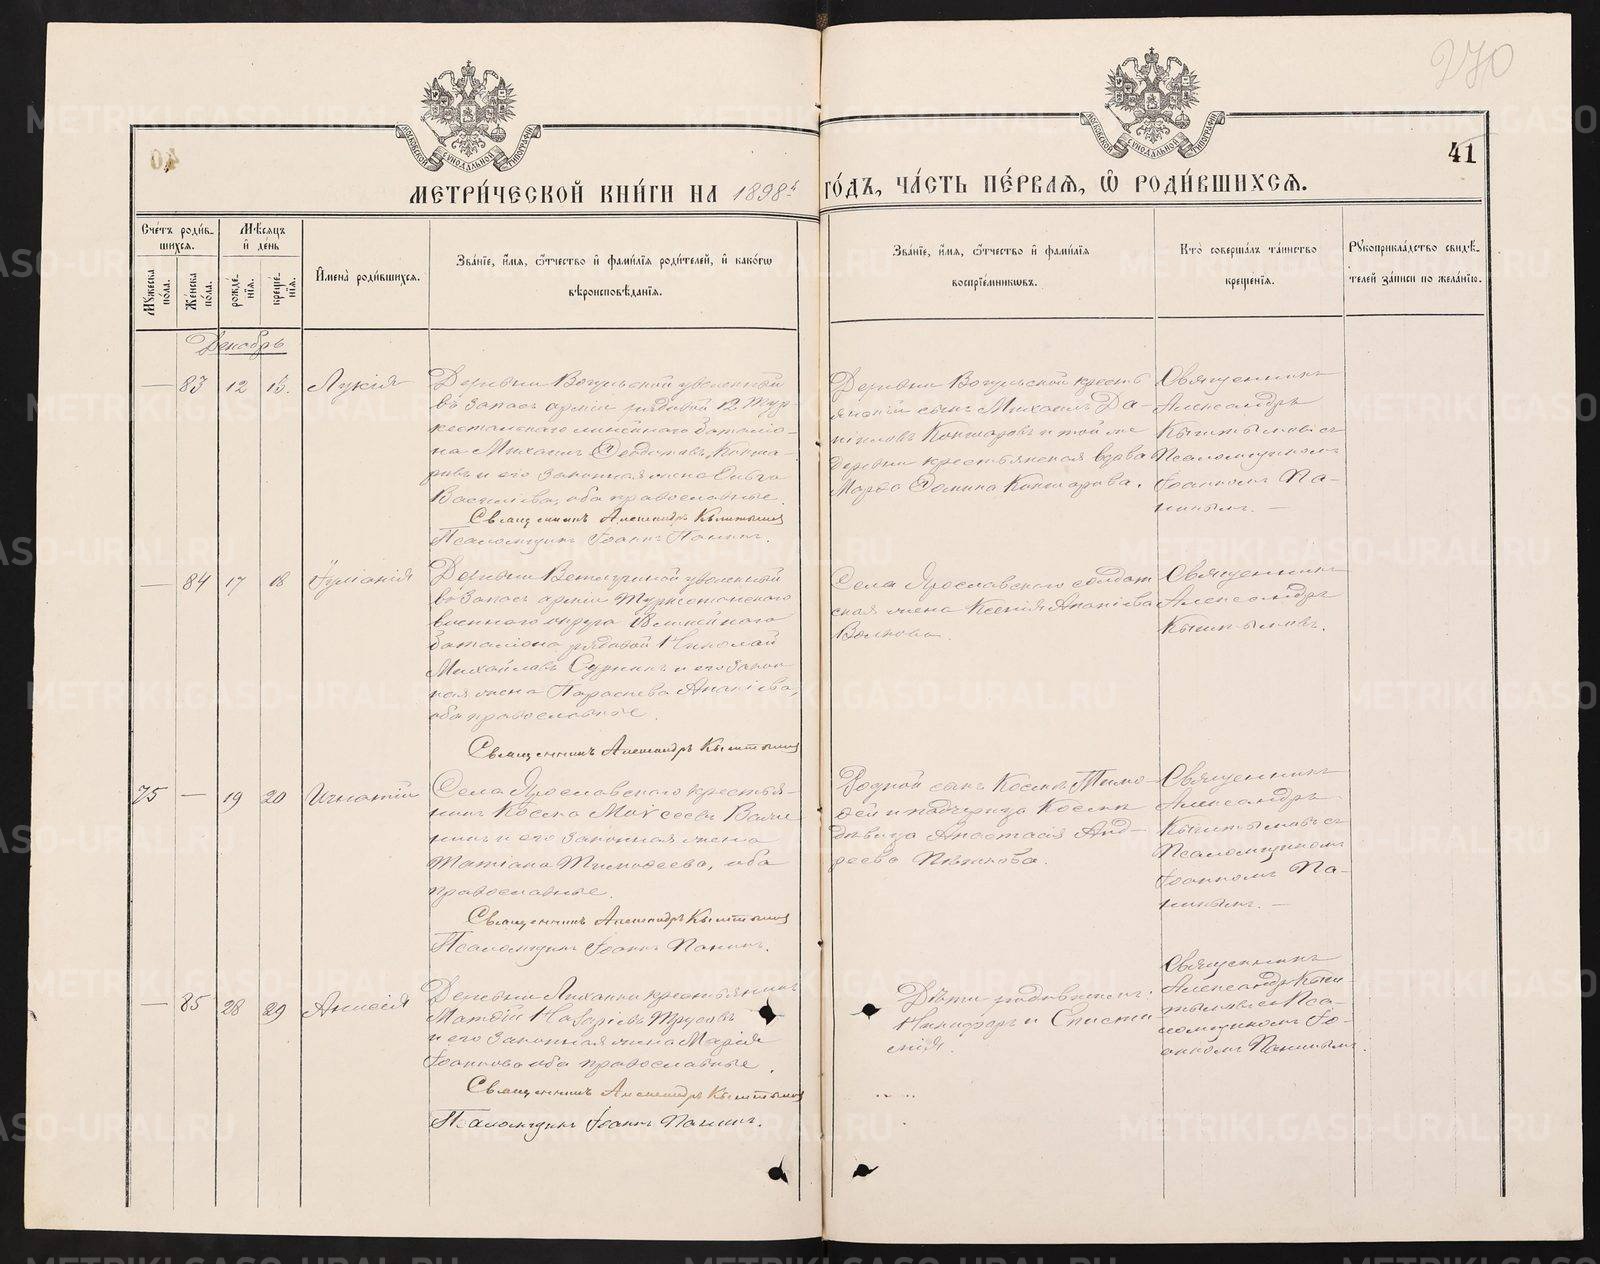 270
41
МОСКОВСКОЙ СѴНОДАЛЬНОЙ ТИПОГРАФІИ
МОСКОВСКОЙ СѴНОДАЛЬНОЙ ТИПОГРАФІИ
МЕТРИ́ЧЕСКОЙ КНИ́ГИ НА 1898 й ГО́ДЪ, ЧА́СТЬ ПЕ́РВАЯ, Ѡ РОДИ́ВШИХСЯ.
Сче́тъ роди́в-
шихся.
Мꙋ́жеска по́ла.
Же́нска по́ла.
Мѣ́сяцъ и де́нь
рожде́-
нія.
креще́-
нія.
Имена̀ роди́вшихся.
Зва́ніе, и́мя, ѻ҆́тчество и фами́лія роди́телей, и како́гѡ
вѣроисповѣ́данія.
Зва́ніе, и́мя, ѻ҆́тчество и фами́лія
воспріе́мникѡвъ.
Кто̀ соверша́лъ та́инство
креще́нія.
Рꙋкоприкла́дство свидѣ́-
телей за́писи по жела́нію.
Декабрь
— 83 12 13. Лукія
Деревни Вогульской уволенный
въ запасъ арміи рядовой 12 Тур-
кестанскаго линейнаго баталіо-
на Михаилъ Ѳеодоровъ Конша-
ровъ и его законная жена Ольга
Васильева, оба православные.
Священникъ Александръ Кыштымовъ
Псаломщикъ Іоаннъ Панинъ.
Деревни Вогульской кресть-
янскій сынъ Михаилъ Да-
ніиловъ Коншаровъ и той же
деревни крестьянская вдова
Марѳа Ѳомина Коншарова.
Священникъ
Александръ
Кыштымовъ съ
Псаломщикомъ
Іоанномъ Па-
нинымъ. —
— 84 17 18 Іуліанія
Деревни уволенный
въ запасъ арміи Туркестанскаго
военнаго округа линейнаго
баталіона рядовой Николай
Михайловъ и его закон-
ная жена Параскева Ананіева,
оба православные.
Священникъ Александръ Кыштымовъ
Села Ярославскаго солдат-
ская жена Ксенія Ананіева
Волкова.
Священникъ
Александръ
Кыштымовъ.
75 — 19 20 Игнатій
Села Ярославскаго крестья-
нинъ Косма Моѵсеевъ
и его законная жена
Татіана Тимоѳеева, оба
православные.
Священникъ Александръ Кыштымовъ
Псаломщикъ Іоаннъ Панинъ.
Родной сынъ Космы Тимо-
ѳей и падчерица Космы
дѣвица Анастасія Анд-
реева
Священникъ
Александръ
Кыштымовъ съ
Псаломщикомъ
Іоанномъ Па-
нинымъ. —
— 85 28 29 Анисія
Деревни крестьянинъ
Матѳій Назаріевъ Трусовъ
и его законная жена Марія
Іоаннова оба православные.
Священникъ Александръ Кыштымовъ
Псаломщикъ Іоаннъ Панинъ.
Дѣти родителей:
Никифоръ и
Священникъ
Александръ Кыш-
тымовъ съ Пса-
ломщикомъ Іо-
анномъ Панинымъ.